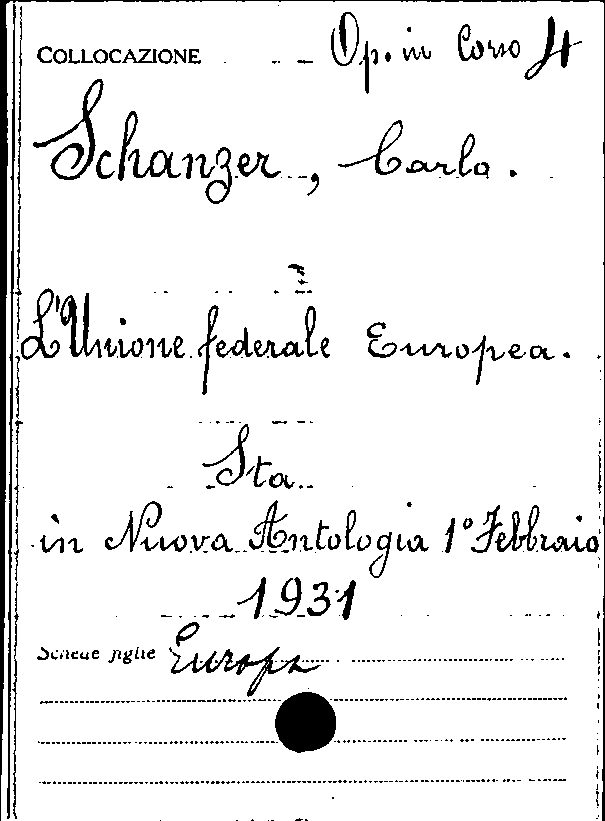 COLLOCAZIONE Op. in Corso 4
Schanzer, Carlo.
L'Unione federale Europea.
Sta
in Nuova Antologia 1° Febbraio
1931
Schede figlie Europa